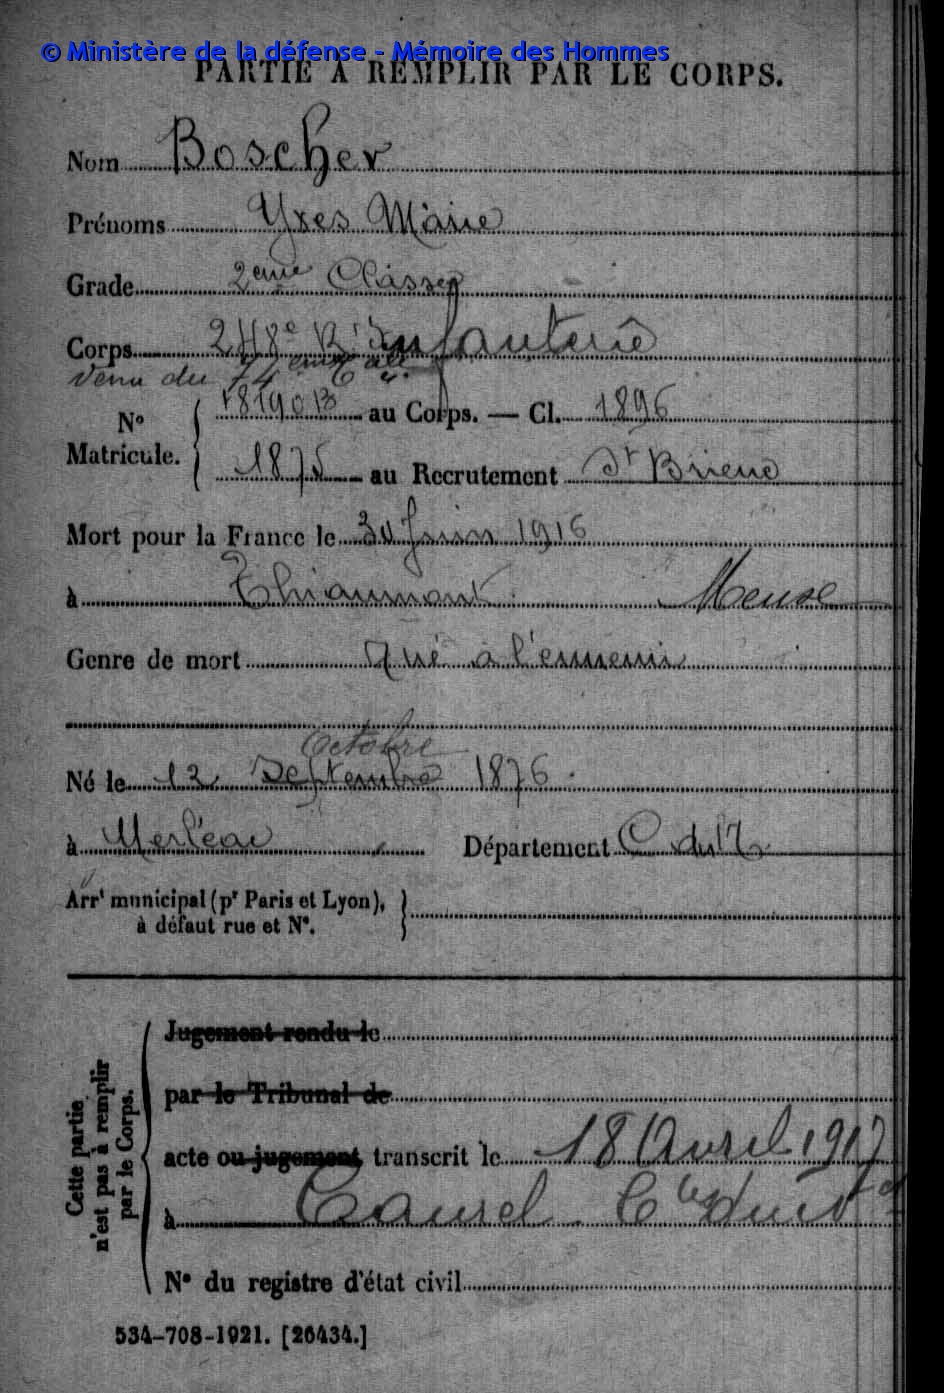 © Ministère de la défense - Mémoire des Hommes
PARTIE À REMPLIR PAR LE CORPS.
Nom Boscher
Prénoms Yves Marie
Grade 2eme Classe
Corps 248e R.t Infanterie
venu du 74eme
No Matricule. 8190 B au Corps. — Cl. 1896
1875 au Recrutement St Brieuc
Mort pour la France le 30 Juin 1916
à Thiaumont Meuse
Genre de mort Tué à l'ennemi
Octobre
Né le 12 Septembre 1876
à Merléac Département C. du N
Arrt municipal (pr Paris et Lyon),
à défaut rue et No.
Cette partie
n'est pas à remplir
par le Corps.
Jugement rendu le
par le Tribunal de
acte ou jugement transcrit le 18 Avril 1917
à Caurel Ctes du Nord
No du registre d'état civil
534-708-1921. [26434.]